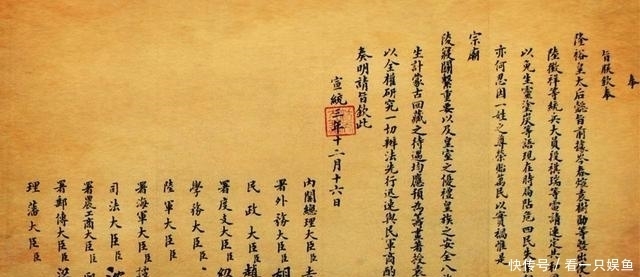 奉
旨朕欽奉
隆裕皇太后懿旨前據岑春煊袁樹勛等暨
陸徵祥等統兵大員段祺瑞等電請速定共
以免生靈塗炭等語現在時局阽危四民失
亦何忍因一姓之尊榮貽萬民以實禍惟是
宗廟
陵寢關繫重要以及皇室之優禮皇族之安全八
生計蒙古回藏之待遇均應預為籌畫著授袁
以全權研究一切辦法先行迅速與民軍商酌
奏明請旨欽此
宣統三年十二月十六日
內閣總理大臣臣
署外務大臣臣胡
民政大臣臣趙
署度支大臣臣紹
學務大臣臣
陸軍大臣臣
署海軍大臣臣
司法大臣臣沈
署農工商大臣臣
署郵傳大臣臣梁
理藩大臣臣
快传号 / 看一只娱鱼